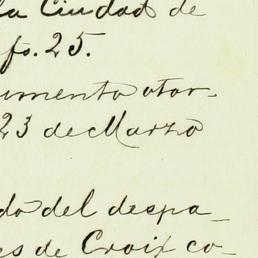 la Ciudad de
fo. 25.
umento otor-
23 de Marzo
do del despa-
es de Croix co-